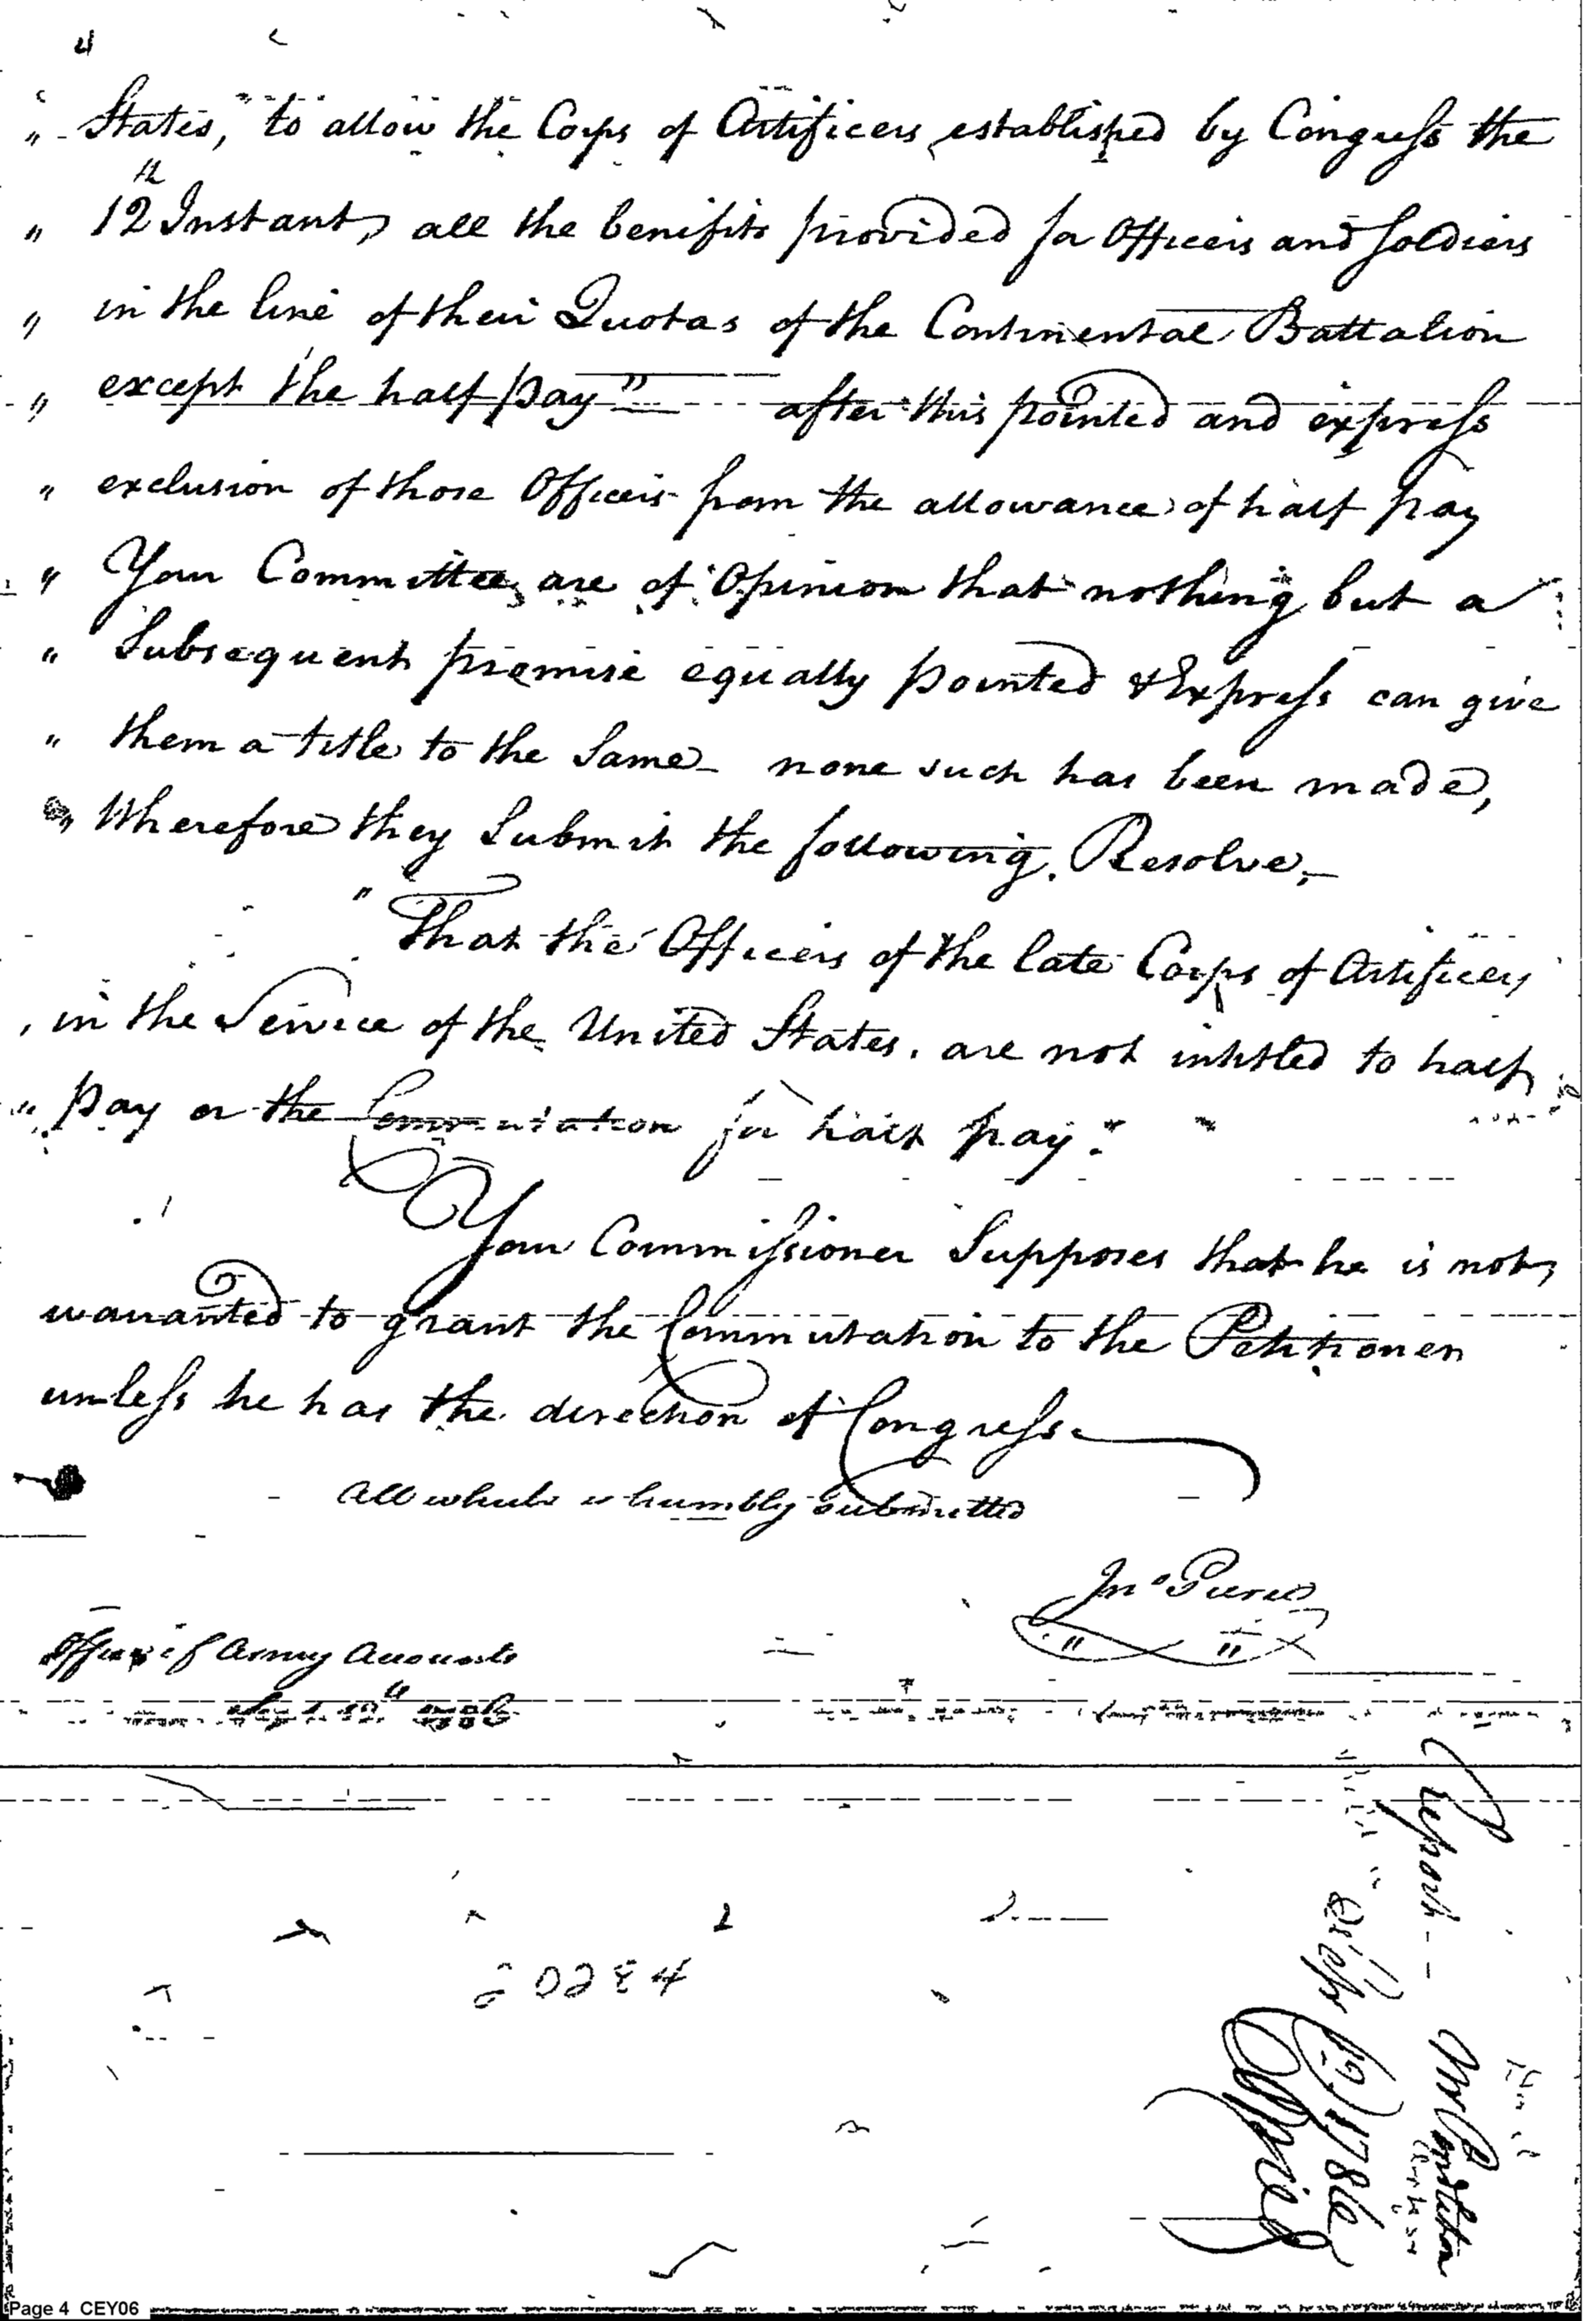 4
„ States, to allow the Corps of Artificers established by Congress the
„ 12th Instant, all the benifits provided for Officers and Soldiers
„ in the line of their Quotas of the Continental Battalion
„ except the half pay" after this pointed and express
„ exclusion of those Officers from the allowance of half pay
„ Your Committee are of Opinion that nothing but a
„ Subsequent promise equally pointed & Express can give
„ them a title to the Same none such has been made,
„ Wherefore they Submit the following Resolve,
" That the Officers of the late Corps of Artificers
, in the Service of the United States, are not intitled to half
„ pay or the Commutation for half pay."
Your Commissioner Supposes that he is not,
warranted to grant the Commutation to the Petitioner
unless he has the direction of Congress.
All which is humbly submitted
Jno Pierce
Office of Army Accounts
Sept. 12th 1786
Report --
Mr Pendleton
1786
Copied
20284
Page 4 CEY06